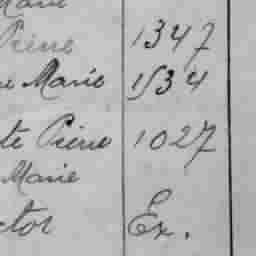 Marie
Pierre 1347
Marie 1534
te Pierre 1027
Marie
ctor Ex.